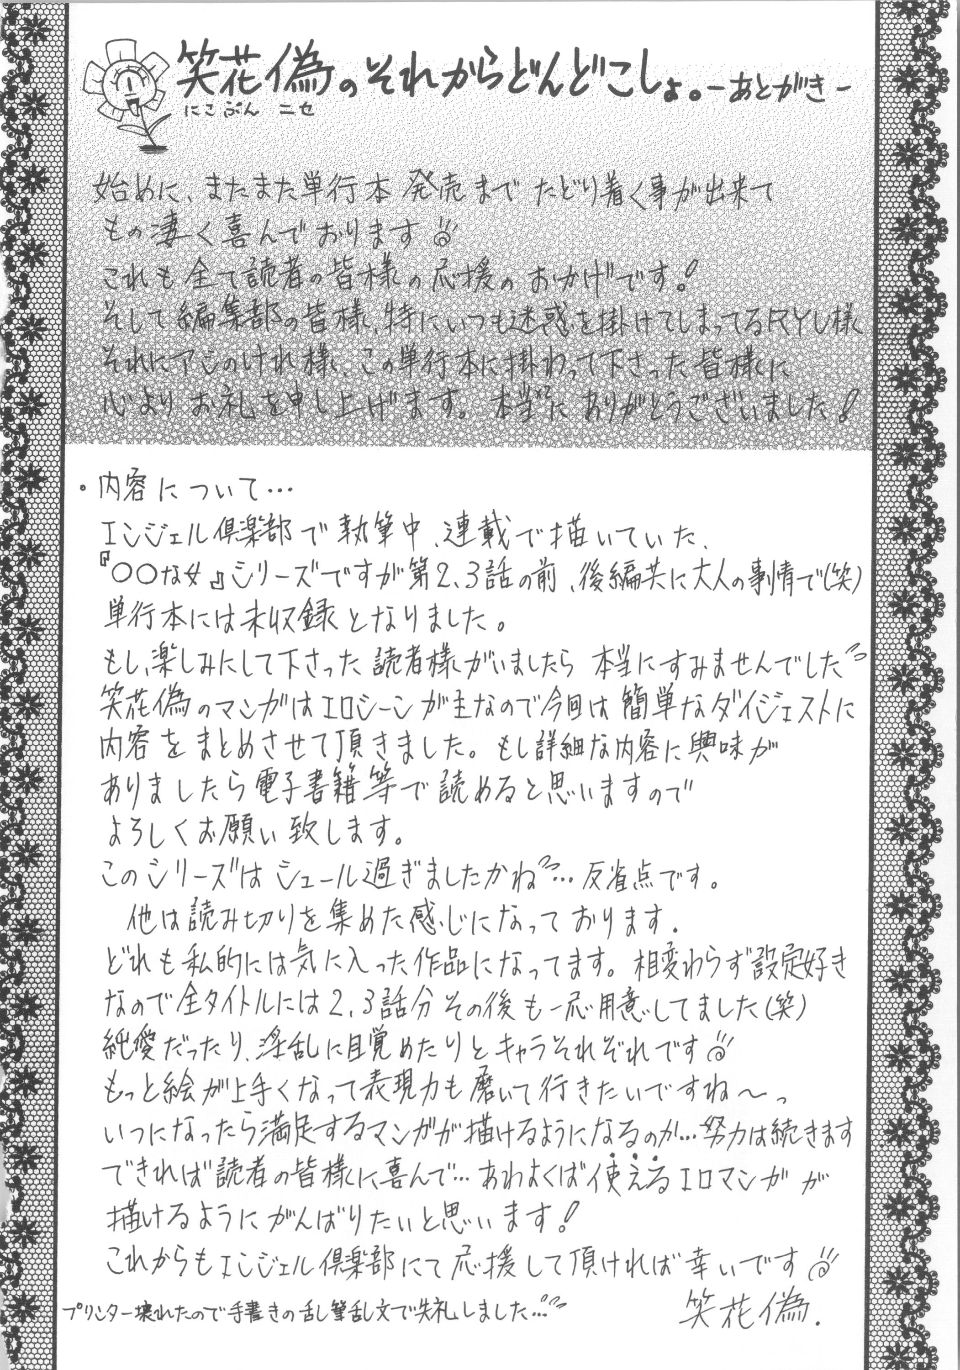 笑花偽のそれからどんどこしょ。-あとがき-
にこぷん ニセ
始めに、またまた単行本 発売まで たどり着く事が出来て
もの凄く喜んでおります
これも全て読者の皆様の応援のおかげです!
そして編集部の皆様、特にいつも迷惑を掛けてしまってるRYU様
それにアシのけれ様、この単行本に掛わって下さった皆様に
心よりお礼を申し上げます。本当にありがとうございました!
・内容について…
エンジェル倶楽部で執筆中、連載で描いていた、
『○○な女』シリーズですが第2、3話の前、後編共に大人の事情で(笑)
単行本には未収録となりました。
もし、楽しみにして下さった読者様がいましたら 本当にすみませんでした
笑花偽のマンガはエロシーンが主なので今回は簡単なダイジェストに
内容をまとめさせて頂きました。もし詳細な内容に興味が
ありましたら電子書籍等で読めると思いますので
よろしくお願い致します。
このシリーズはシュール過ぎましたかね…反省点です。
他は読み切りを集めた感じになっております.
どれも私的には気に入った作品になってます。相変わらず設定好き
なので全タイトルには2、3話分その後も一応用意してました(笑)
純愛だったり、淫乱に目覚めたりとキャラそれぞれです
もっと絵が上手くなって表現力も磨いて行きたいですね〜っ
いつになったら満足するマンガが描けるようになるのか…努力は続きます
できれば読者の皆様に喜んで…あわよくば使えるエロマンガが
描けるようにがんばりたいと思います!
これからもエンジェル倶楽部にて応援して頂ければ幸いです
笑花偽.
プリンター壊れたので手書きの乱筆乱文で失礼しました…